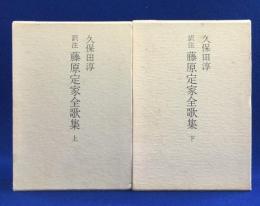 久保田淳
訳注 藤原定家全歌集 上
久保田淳
訳注 藤原定家全歌集 下